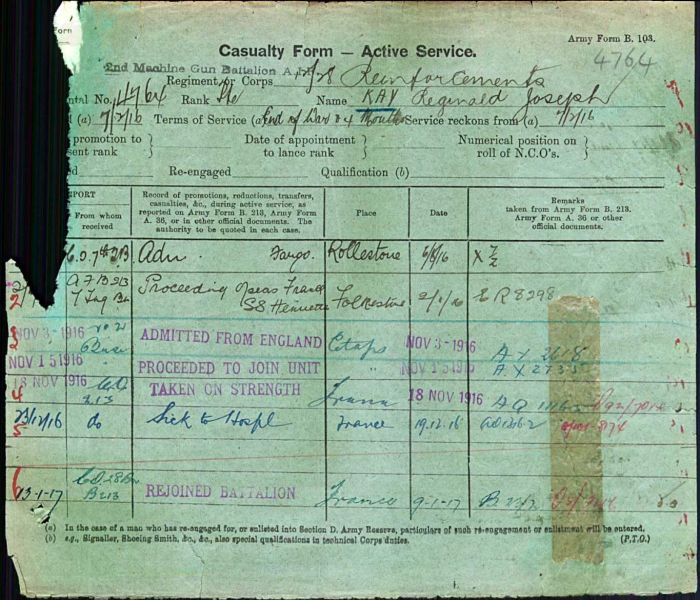 orn
Army Form B. 103.
Casualty Form — Active Service.
4764
2nd Machine Gun Battalion A.I.F.
Regiment or Corps 2/28 Reinforcements
ental No. 4764 Rank Pte Name KAY Reginald Joseph
(a) 7/2/16 Terms of Service (a) End of War & 4 Months Service reckons from (a) 7/2/16
promotion to } Date of appointment } Numerical position on }
sent rank to lance rank roll of N.C.O's.
d Re-engaged Qualification (b)
PORT
From whom received
Record of promotions, reductions, transfers, casualties, &c., during active service, as reported on Army Form B. 213, Army Form A. 36, or in other official documents. The authority to be quoted in each case.
Place
Date
Remarks taken from Army Form B. 213, Army Form A. 36 or other official documents.
Adm. Fargo. Rollestone
2 A F B 213 Proceeding Overseas France
SS Henrietta Folkestone E R 8298
NOV 3 - 1916 ADMITTED FROM ENGLAND Etaps NOV 3 - 1916
NOV 15 1916 PROCEEDED TO JOIN UNIT NOV 15 1916
18 NOV 1916 213 TAKEN ON STRENGTH France 18 NOV 1916
4
23/12/16 do Sick to Hospl France 19.12.16
5
6
13-1-17 B213 REJOINED BATTALION France 9-1-17
(a) In the case of a man who has re-engaged for, or enlisted into Section D. Army Reserve, particulars of such re-engagement or enlistment will be entered.
(b) e.g., Signaller, Shoeing Smith, &c., &c., also special qualifications in technical Corps duties. (P.T.O.)